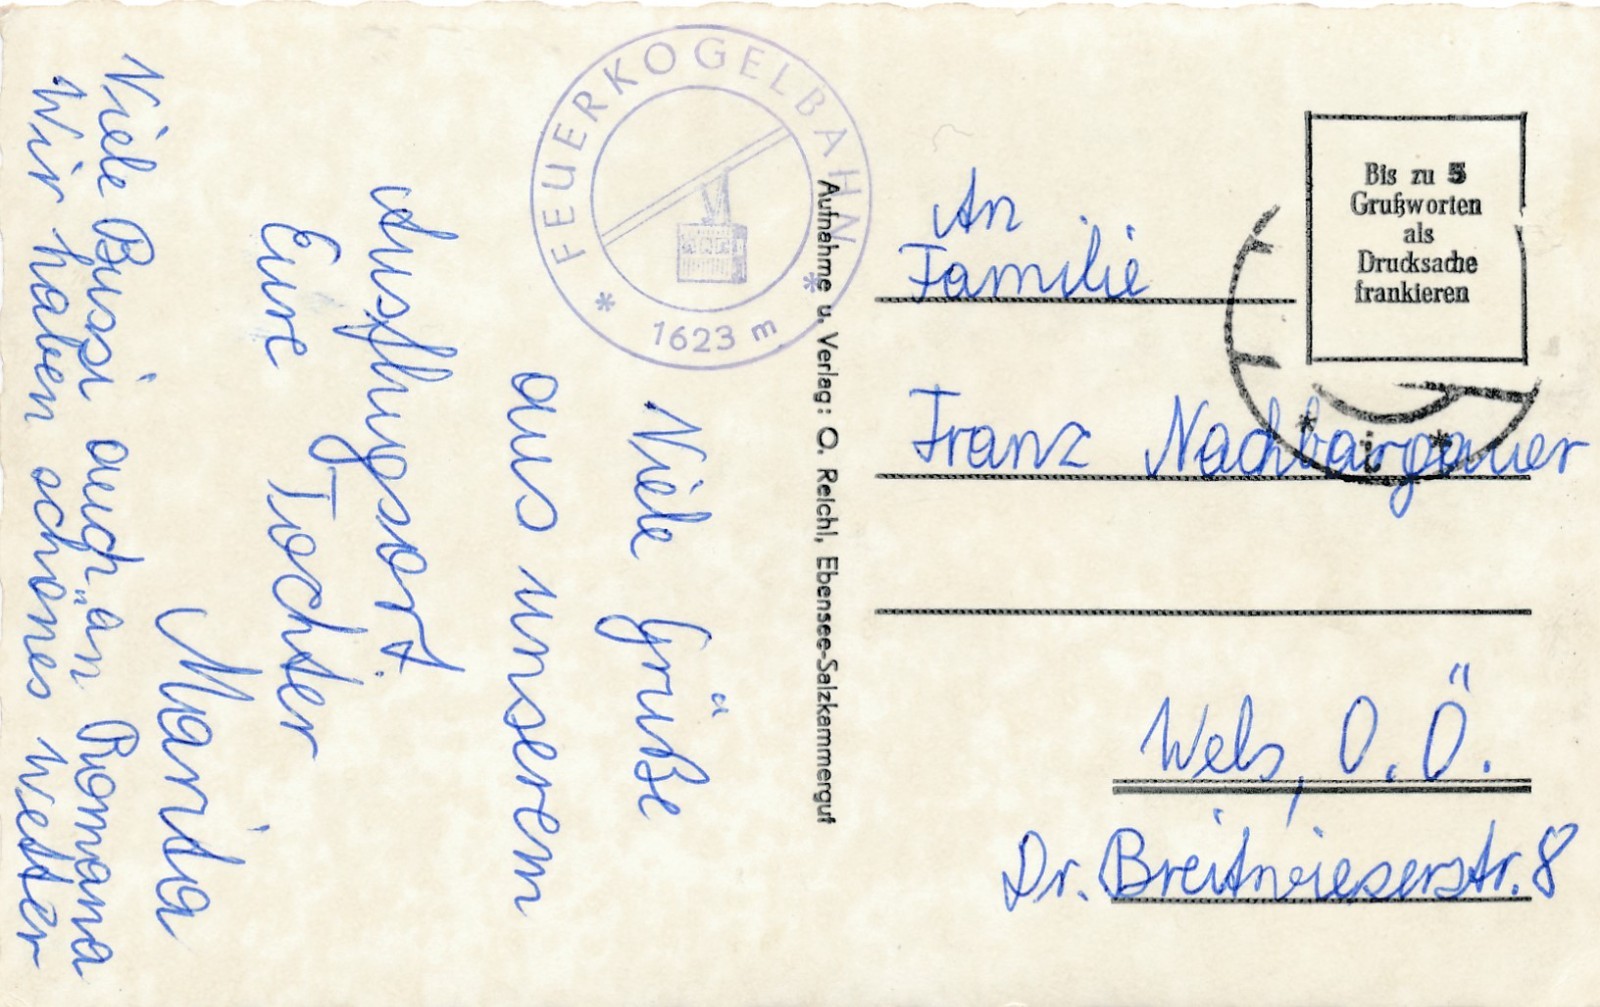 Viele Grüße
aus unserem
Ausflugsort.
Eure Tochter
Marita
Viele Bussi auch an Romana
Wir haben schönes Wetter
FEUERKOGELBAHN
* 1623 m *
Aufnahme u. Verlag: O. Reichl, Ebensee-Salzkammergut
Bis zu 5
Grußworten
als
Drucksache
frankieren
An
Familie
Franz Nachbargauer
Wels, O.Ö.
Dr. Breitwieserstr. 8